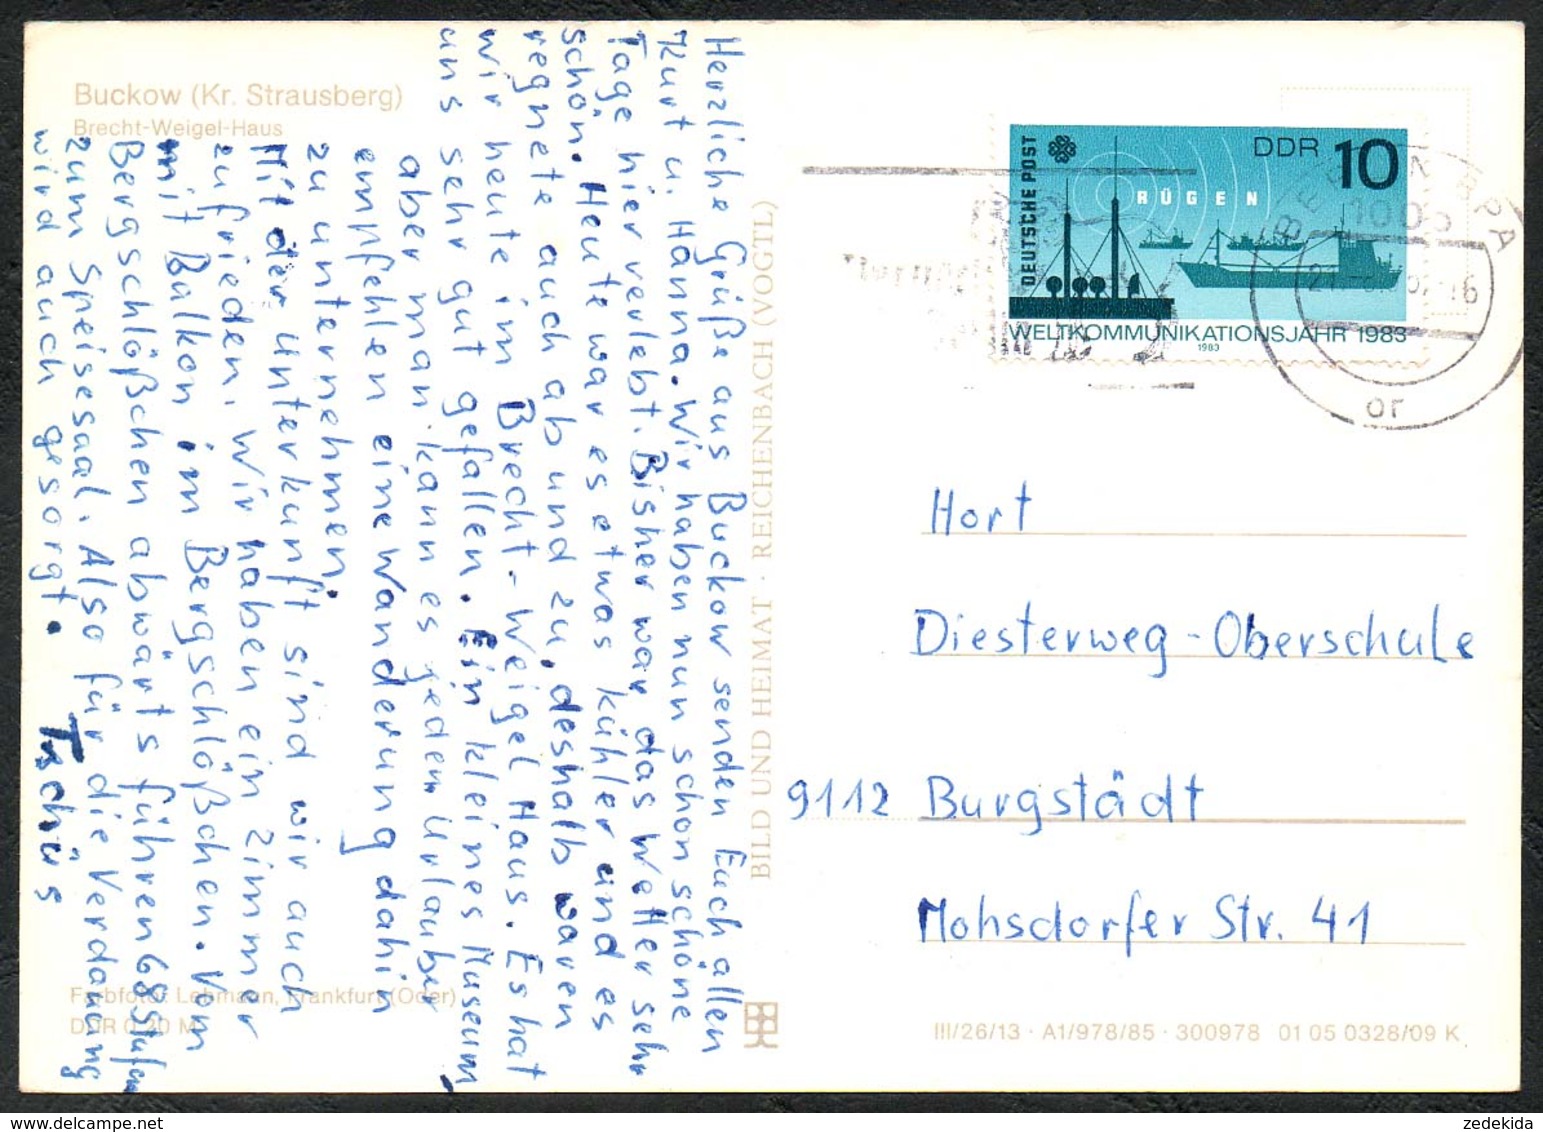 Buckow (Kr. Strausberg)
Brecht-Weigel-Haus
Herzliche Grüße aus Buckow senden Euch allen
Kurt u. Hanna. Wir haben nun schon schöne
Tage hier verlebt. Bisher war das Wetter sehr
schön. Heute war es etwas kühler und es
regnete auch ab und zu, deshalb waren
wir heute im Brecht-Weigel Haus. Es hat
uns sehr gut gefallen. Ein kleines Museum
aber man kann es jedem Urlauber
empfehlen eine Wanderung dahin
zu unternehmen.
Mit der Unterkunft sind wir auch
zufrieden. Wir haben ein Zimmer
mit Balkon im Bergschlößchen. Vom
Bergschlößchen abwärts führen 68 Stufen
zum Speisesaal. Also für die Verdauung
wird auch gesorgt.
Tschüs
Farbfoto: Lehmann, Frankfurt (Oder)
DDR 0,20 M
BILD UND HEIMAT · REICHENBACH (VOGTL)
DEUTSCHE POST
DDR 10
RÜGEN
WELTKOMMUNIKATIONSJAHR 1983
1983
BERLIN BPA
1085
or
Hort
Diesterweg-Oberschule
9112 Burgstädt
Mohsdorfer Str. 41
III/26/13 · A1/978/85 · 300978 01 05 0328/09 K
zedekida